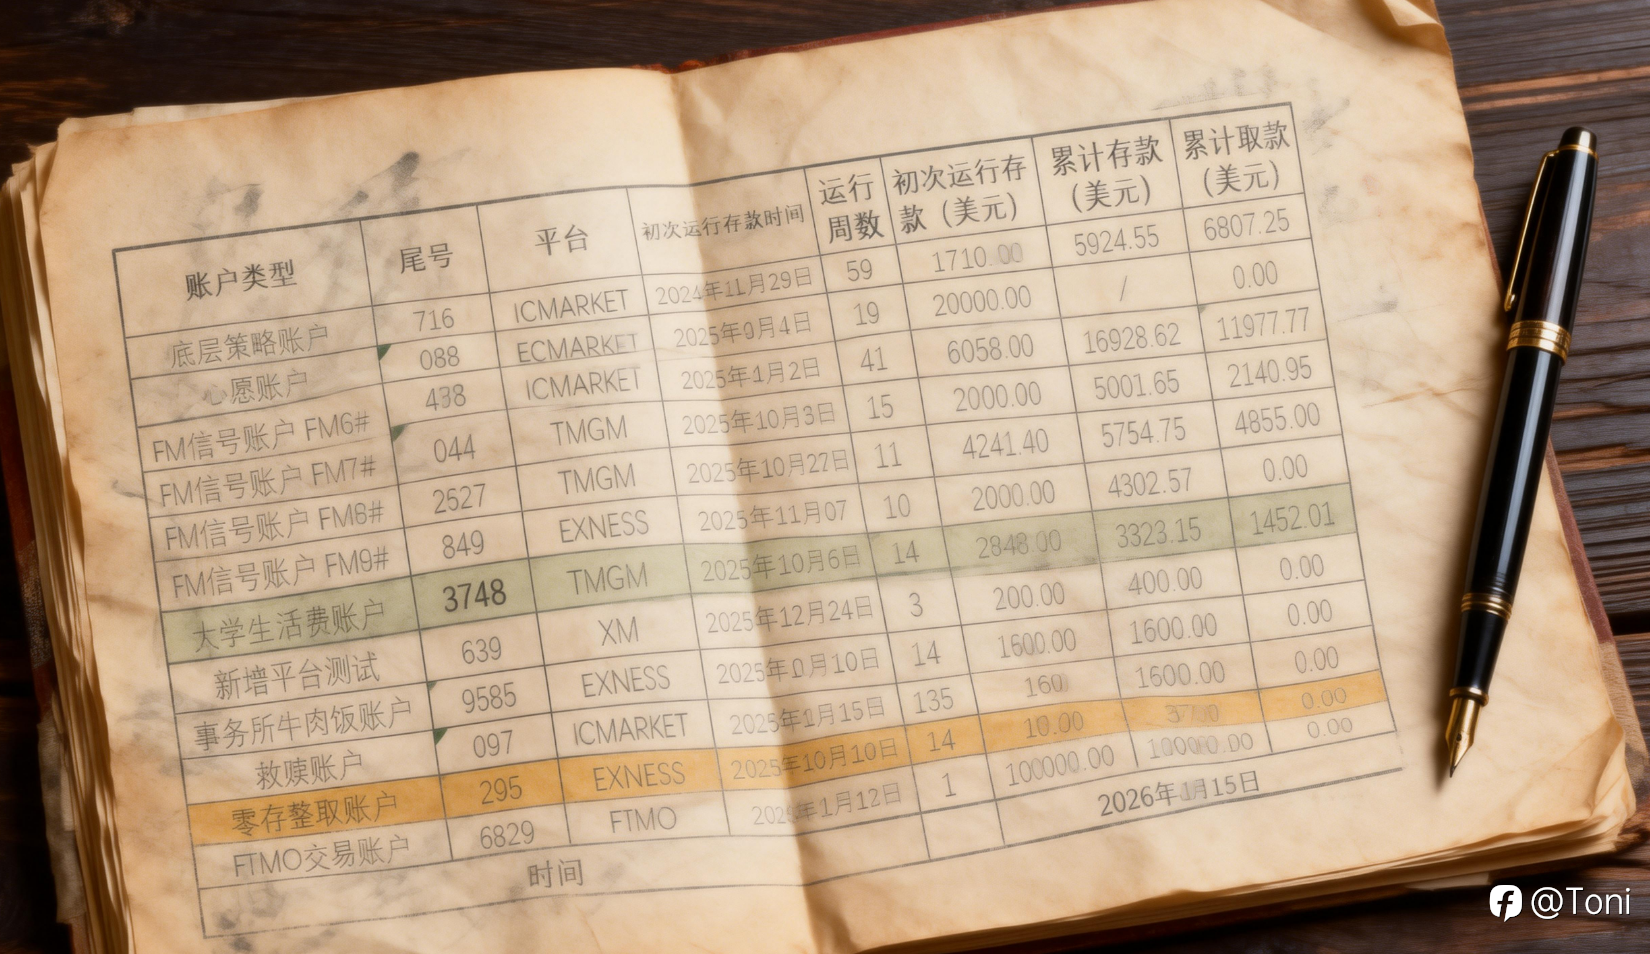 账户类型 尾号 平台 初次运行存款时间 运行周数 初次运行存款（美元） 累计存款（美元） 累计取款（美元）
底层策略账户 716 ICMARKET 2024年11月29日 59 1710.00 5924.55 6807.25
心愿账户 088 ECMARKET 2025年9月4日 19 20000.00 / 0.00
FM信号账户 FM6# 438 ICMARKET 2025年1月2日 41 6058.00 16928.62 11977.77
FM信号账户 FM7# 044 TMGM 2025年10月3日 15 2000.00 5001.65 2140.95
FM信号账户 FM8# 2527 TMGM 2025年10月22日 11 4241.40 5754.75 4855.00
FM信号账户 FM9# 849 EXNESS 2025年11月07 10 2000.00 4302.57 0.00
大学生活费账户 3748 TMGM 2025年10月6日 14 2848.00 3323.15 1452.01
新增平台测试 639 XM 2025年12月24日 3 200.00 400.00 0.00
事务所牛肉饭账户 9585 EXNESS 14 1600.00 1600.00 0.00
救赎账户 097 ICMARKET 2025年1月15日 135 1600.00 0.00
零存整取账户 295 EXNESS 2025年10月10日 14 10.00 0.00
FTMO交易账户 6829 FTMO 2026年1月12日 1 100000.00 100000.00 0.00
时间 2026年1月15日
@Toni